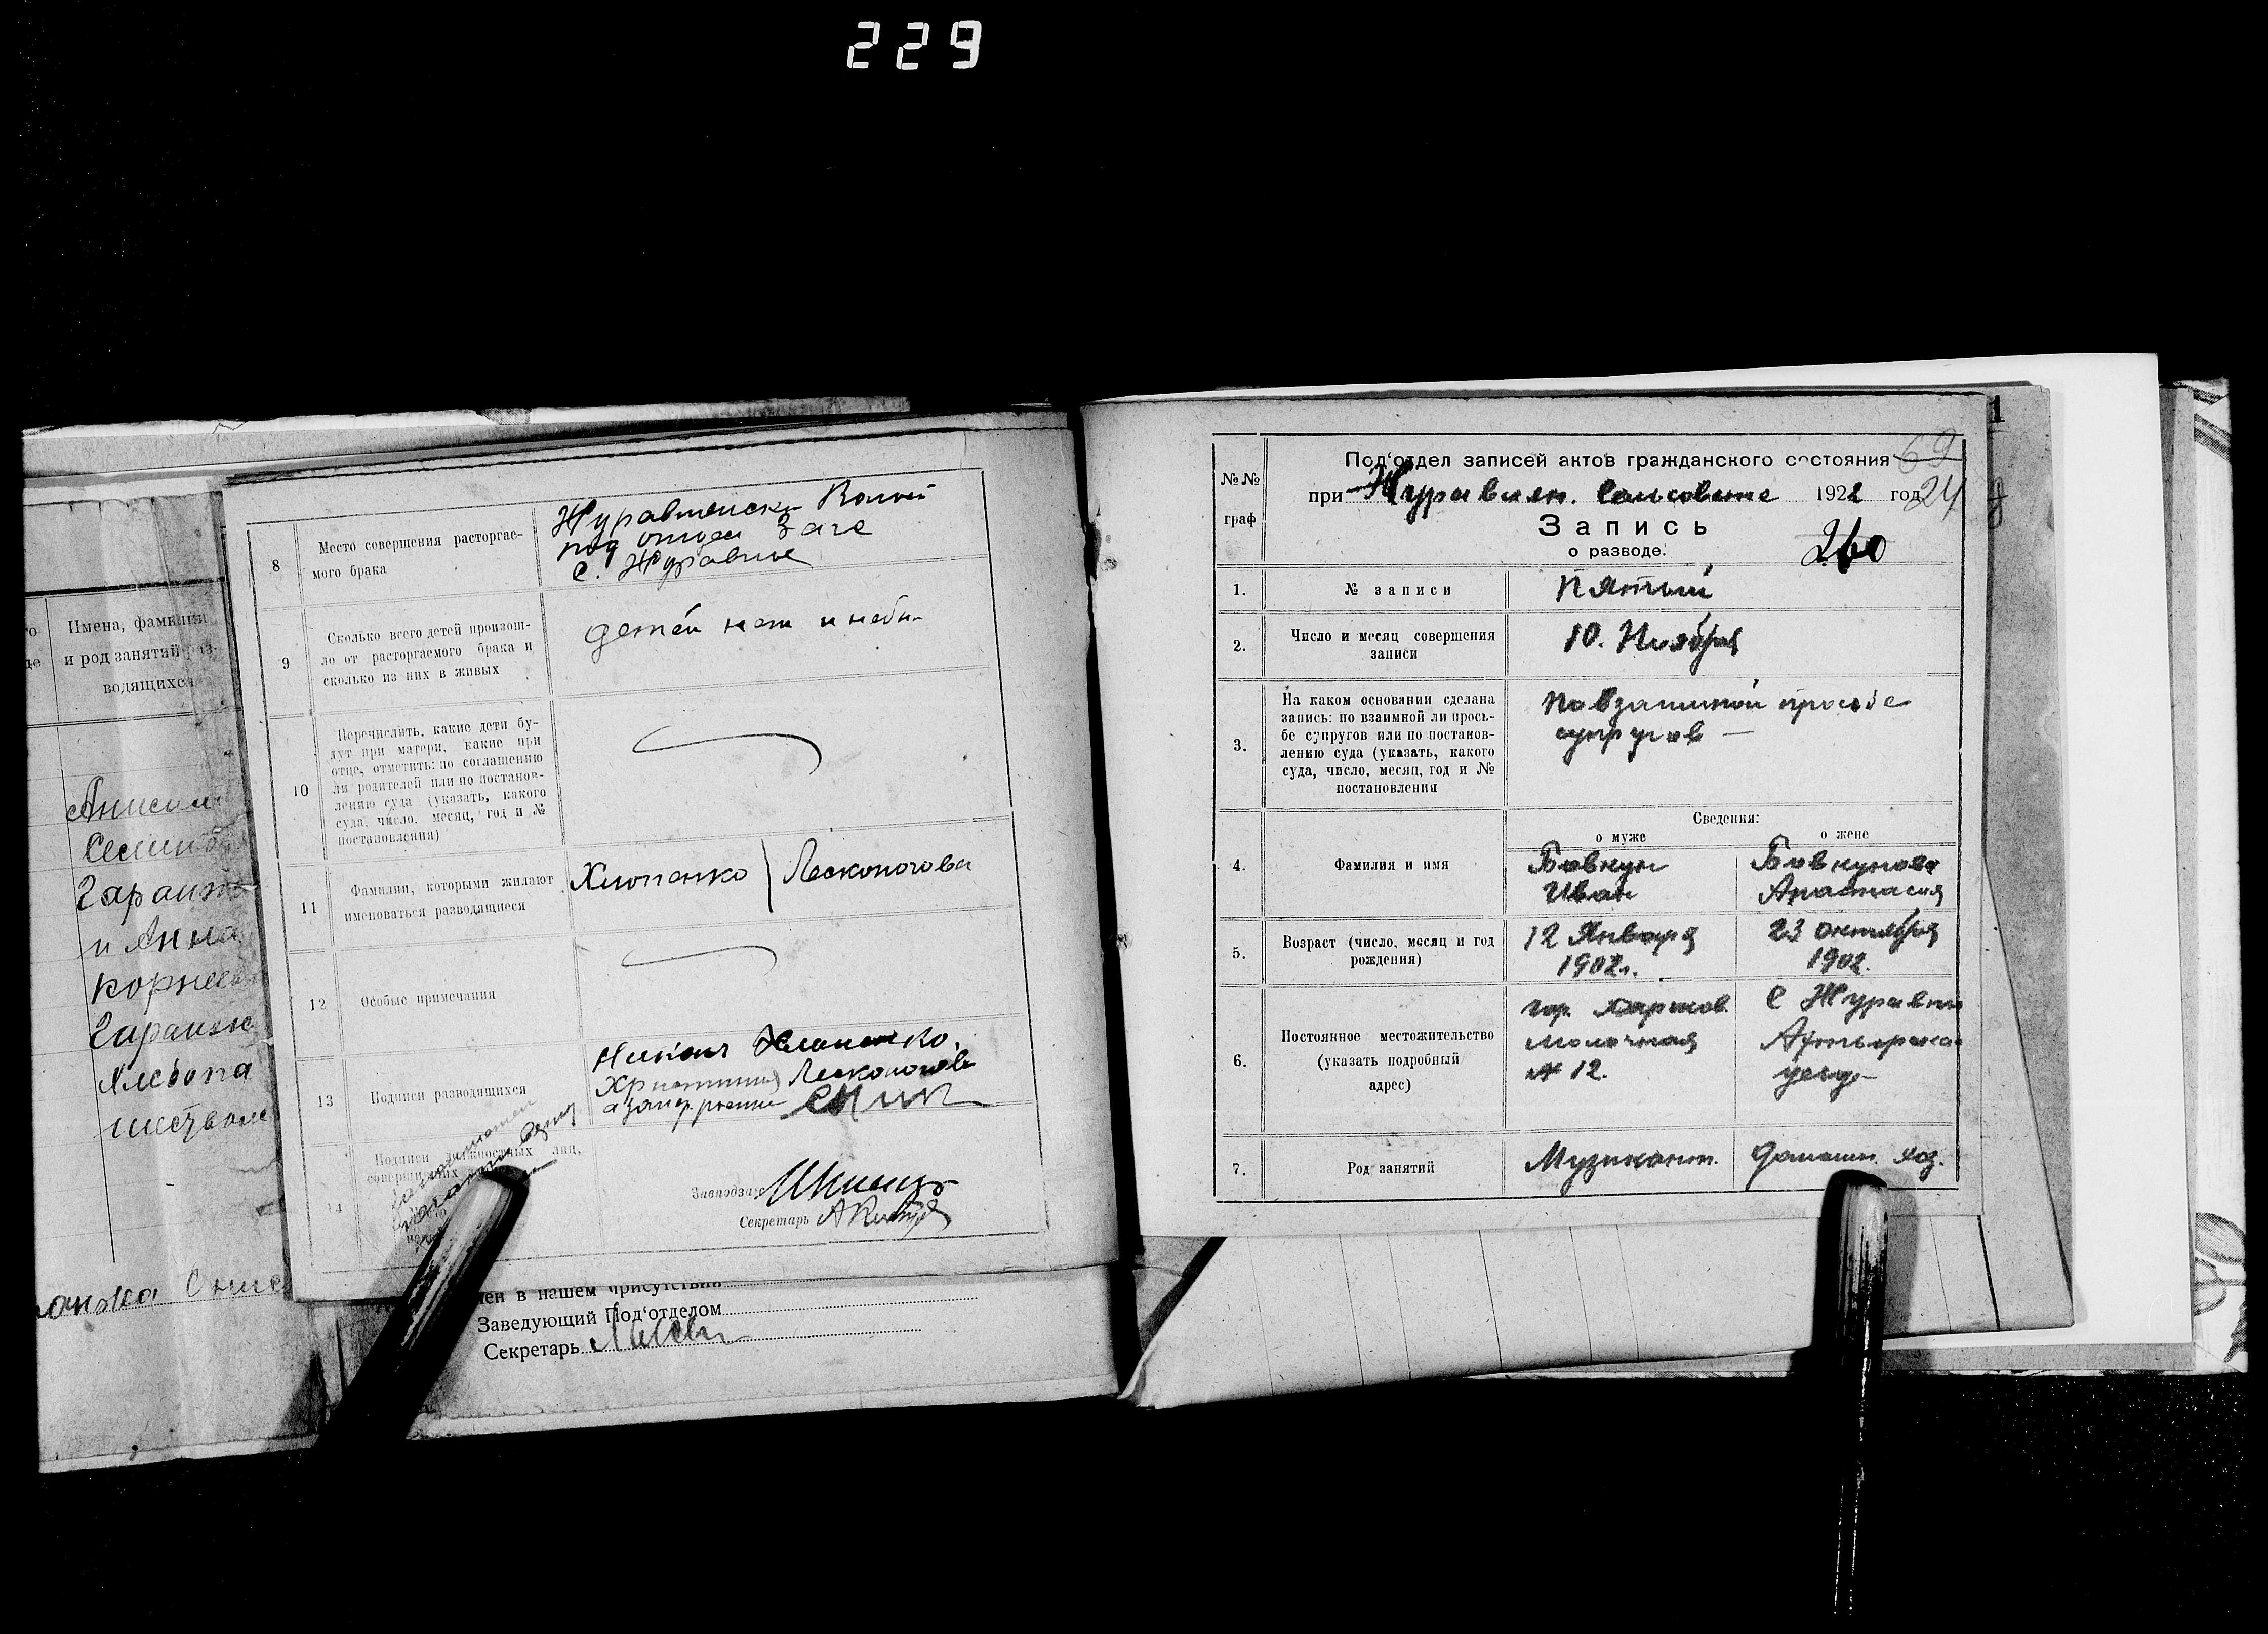 229
Имена, фамилии
и род занятий раз-
водящихся
Семенов
и Анна
8
Место совершения расторгае-
мого брака
с. Журавное
9
Сколько всего детей произош-
ло от расторгаемого брака и
сколько из них в живых
детей нет и небы-
10
Перечислить, какие дети бу-
дут при матери, какие при
отце, отметить: по соглашению
ли родителей или по постанов-
лению суда (указать, какого
суда, число, месяц, год и №
постановления)
11
Фамилии, которыми желают
именоваться разводящиеся
Хлопенко
Лесконогова
12
Особые примечания
13
Подписи разводящихся
Хлопенко
Лесконогова
14
Подписи должностных лиц,
Завподзаг
Секретарь
в нашем присутствии
Заведующий Под'отделом
Секретарь
1
№№
граф
Под'отдел записей актов гражданского состояния
69
при Журавлн. Сельсовете 1922 год
24
Запись
о разводе.
260
1.
№ записи
Пятый
2.
Число и месяц совершения
записи
10. Ноября
3.
На каком основании сделана
запись: по взаимной ли прось-
бе супругов или по постанов-
лению суда (указать, какого
суда, число, месяц, год и №
постановления
По взаимной просьбе
супругов —
Сведения:
о муже
о жене
4.
Фамилия и имя
Бовкун
Иван
Бовкунова
Анастасия
5.
Возраст (число, месяц и год
рождения)
12 Января
1902г.
23 октября
1902.
6.
Постоянное местожительство
(указать подробный
адрес)
гор. Харков
Молочная
№ 12.
С Журавно
уезд
7.
Род занятий
Музикант.
Домашн. хоз.